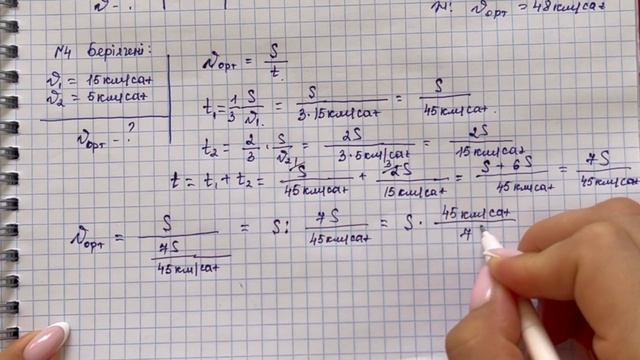 ϑ - ?
N: ϑорт = 48 км/сағ
№4 Берілгені:
ϑ₁ = 15 км/сағ
ϑ₂ = 5 км/сағ
ϑорт - ?
ϑорт = S/t
t₁ = 1/3 S/ϑ₁ = S/(3·15 км/сағ) = S/(45 км/сағ)
t₂ = 2/3 · S/ϑ₂ = 2S/(3·5 км/сағ) = 2S/(15 км/сағ)
t = t₁ + t₂ = S/(45 км/сағ) + ³2S/(15 км/сағ) = (S + 6S)/(45 км/сағ) = 7S/(45 км/сағ)
ϑорт = S/(7S/(45 км/сағ)) = S : 7S/(45 км/сағ) = S · (45 км/сағ)/7